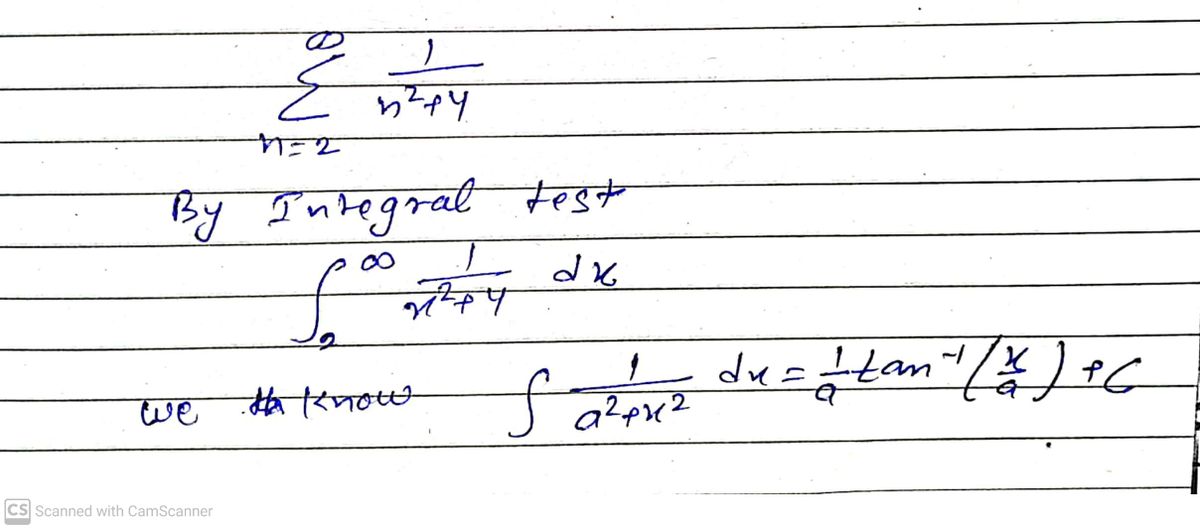 ∞
Σ 1/(n²+4)
n=2
By Integral test
∫₂^∞ 1/(x²+4) dx
we know ∫ 1/(a²+x²) dx = 1/a tan⁻¹(x/a) + C
CS Scanned with CamScanner